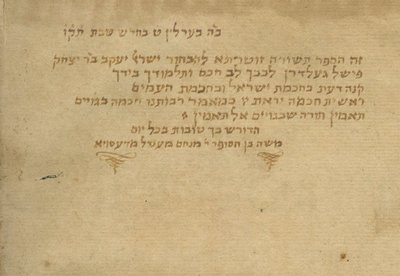 ב״ה בערלין ט בחדש שבת
זה הספר תשורה זוטרתא להבחור ישראל יעקב בר יצחק
פישל געלדרן לבבך לב חכם ותלמודך בידך
קנה דעת בחכמת ישראל ובחכמת העמים
ראשית חכמה יראת ה׳ כמאמר רבותנו חכמה בגוים
תאמין תורה שבגוים אל תאמין
הדורש בך טובות בכל יום
משה בן הסופר ר׳ מנחם מענדל מדעסויא